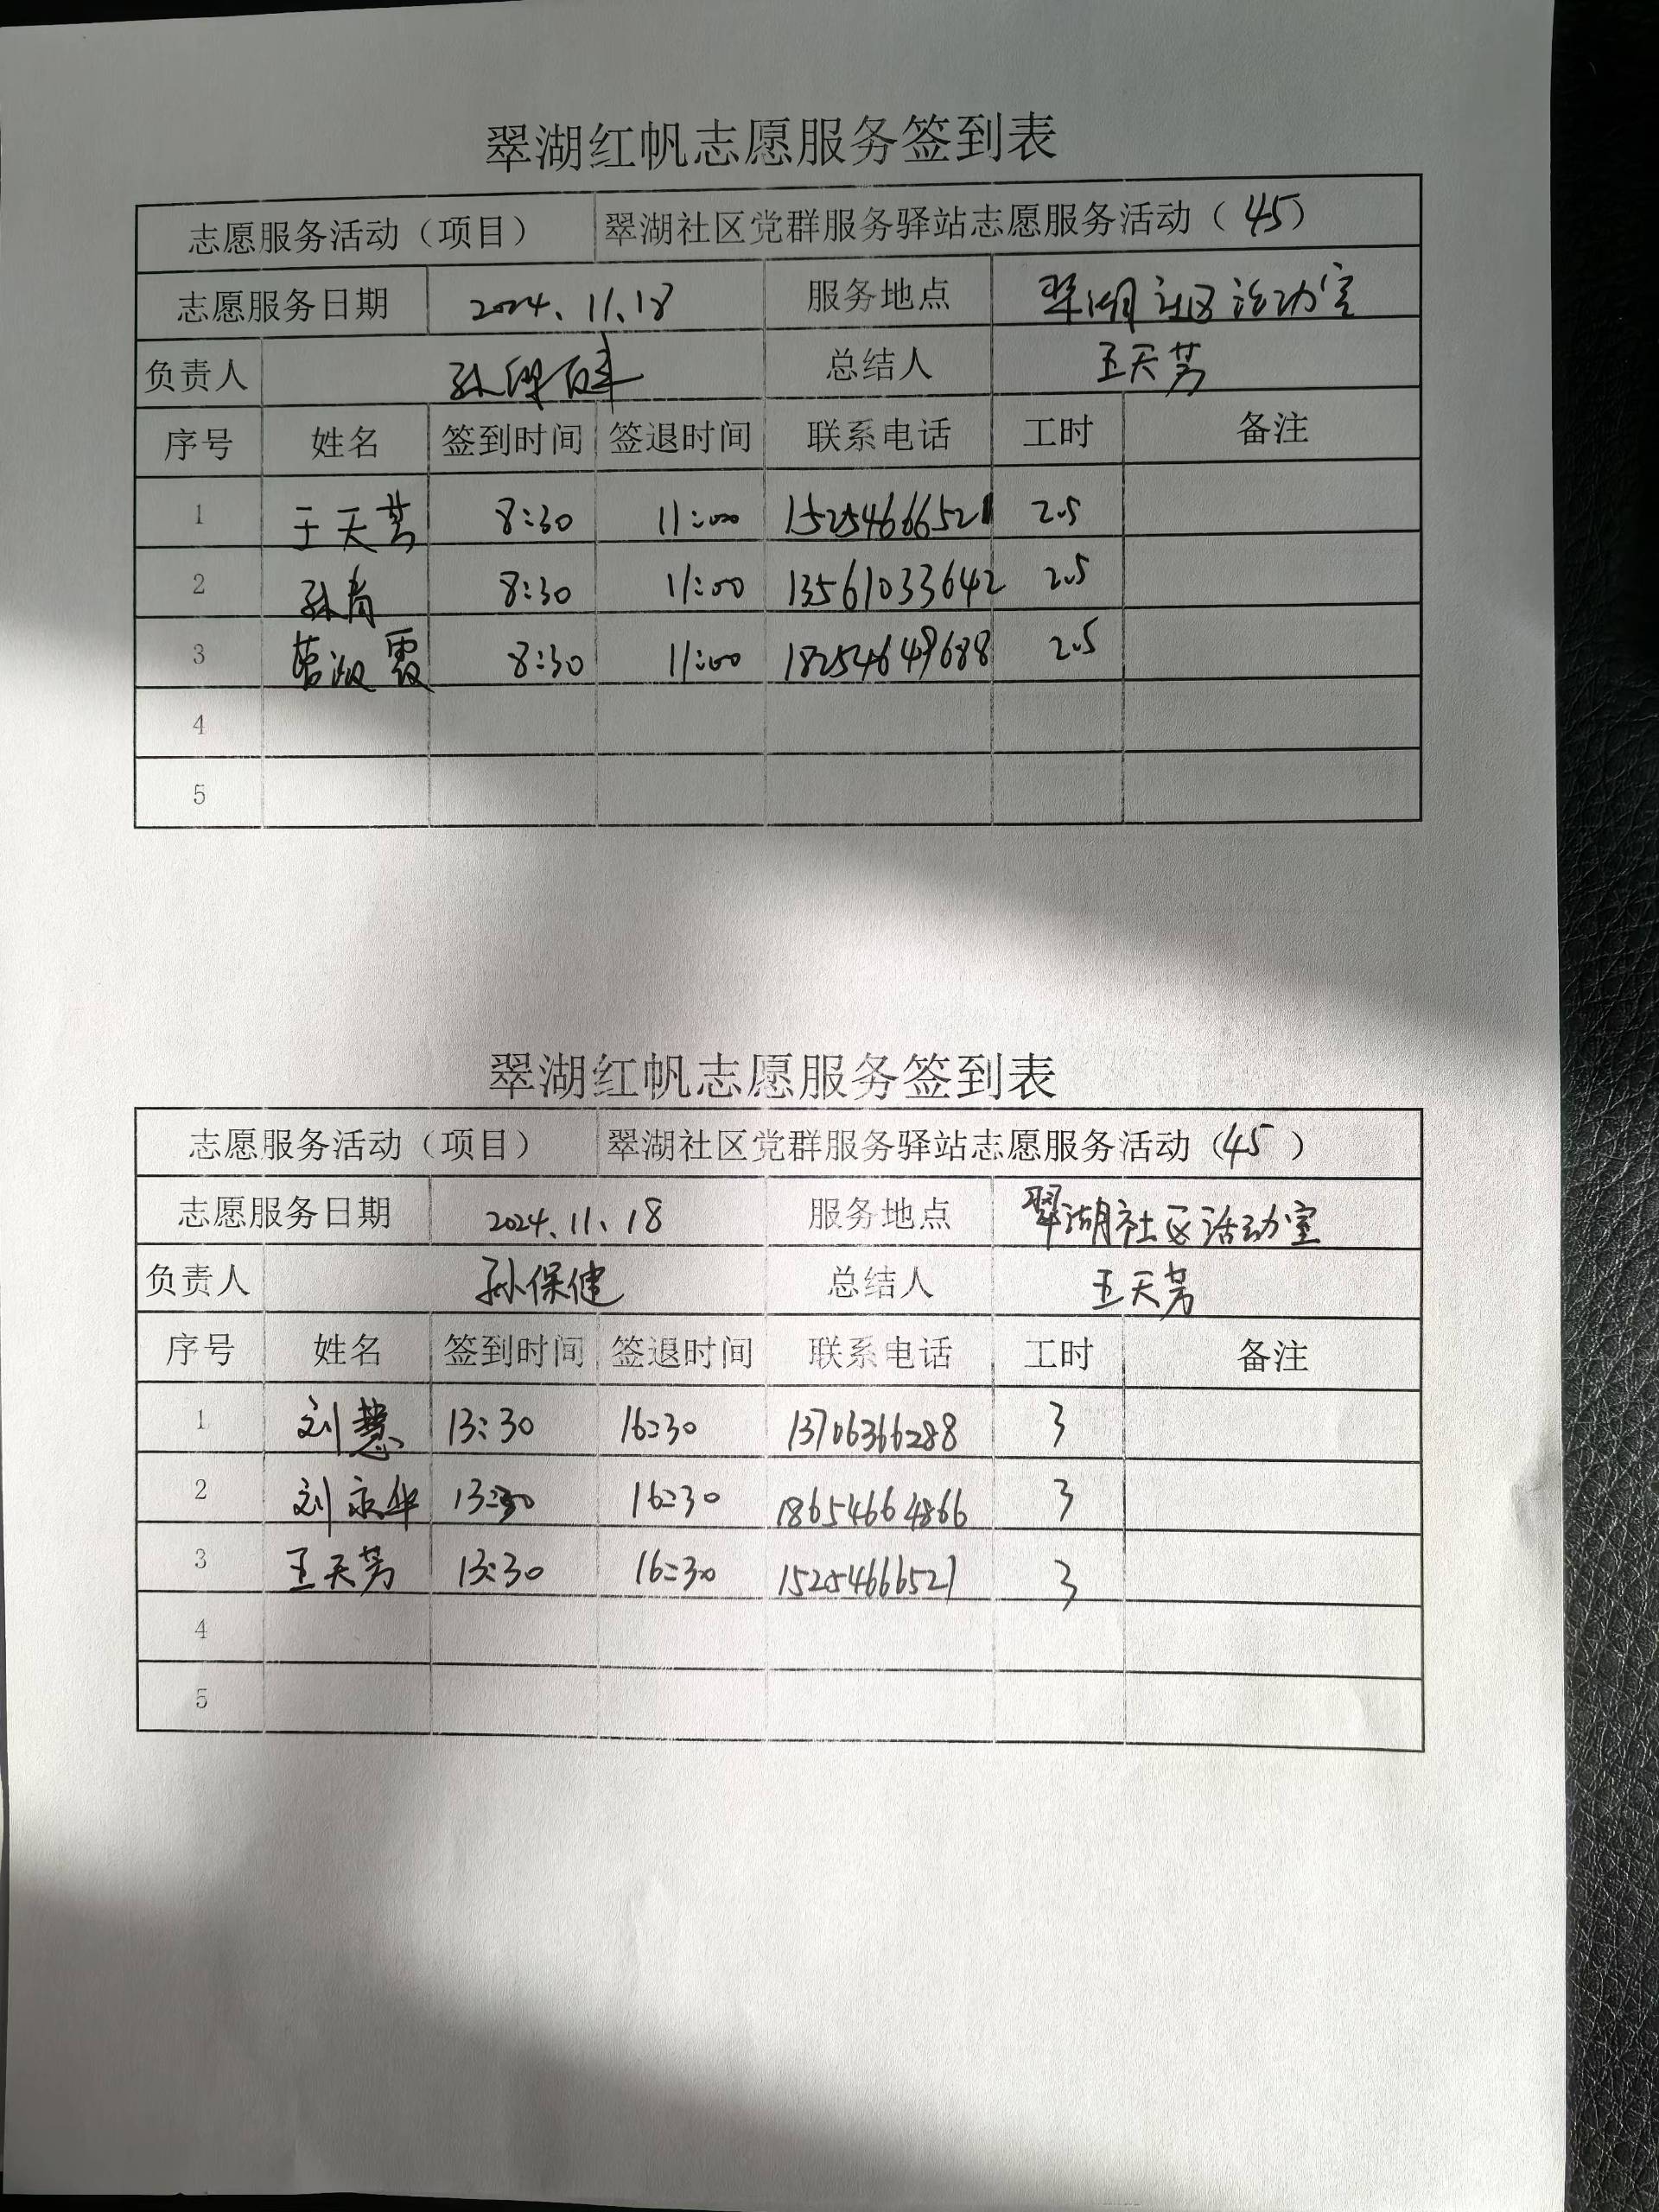 翠湖红帆志愿服务签到表
志愿服务活动（项目） 翠湖社区党群服务驿站志愿服务活动（45）
志愿服务日期 2024.11.18 服务地点 翠湖社区活动室
负责人 孙保健 总结人 王天芳
序号 姓名 签到时间 签退时间 联系电话 工时 备注
1 王天芳 8:30 11:00 15254666521 2.5
2 孙青 8:30 11:00 13561033642 2.5
3 8:30 11:00 18254649688 2.5
4
5
翠湖红帆志愿服务签到表
志愿服务活动（项目） 翠湖社区党群服务驿站志愿服务活动（45）
志愿服务日期 2024.11.18 服务地点 翠湖社区活动室
负责人 孙保健 总结人 王天芳
序号 姓名 签到时间 签退时间 联系电话 工时 备注
1 刘慧 13:30 16:30 13706366288 3
2 刘永华 13:30 16:30 18654664866 3
3 王天芳 13:30 16:30 15254666521 3
4
5